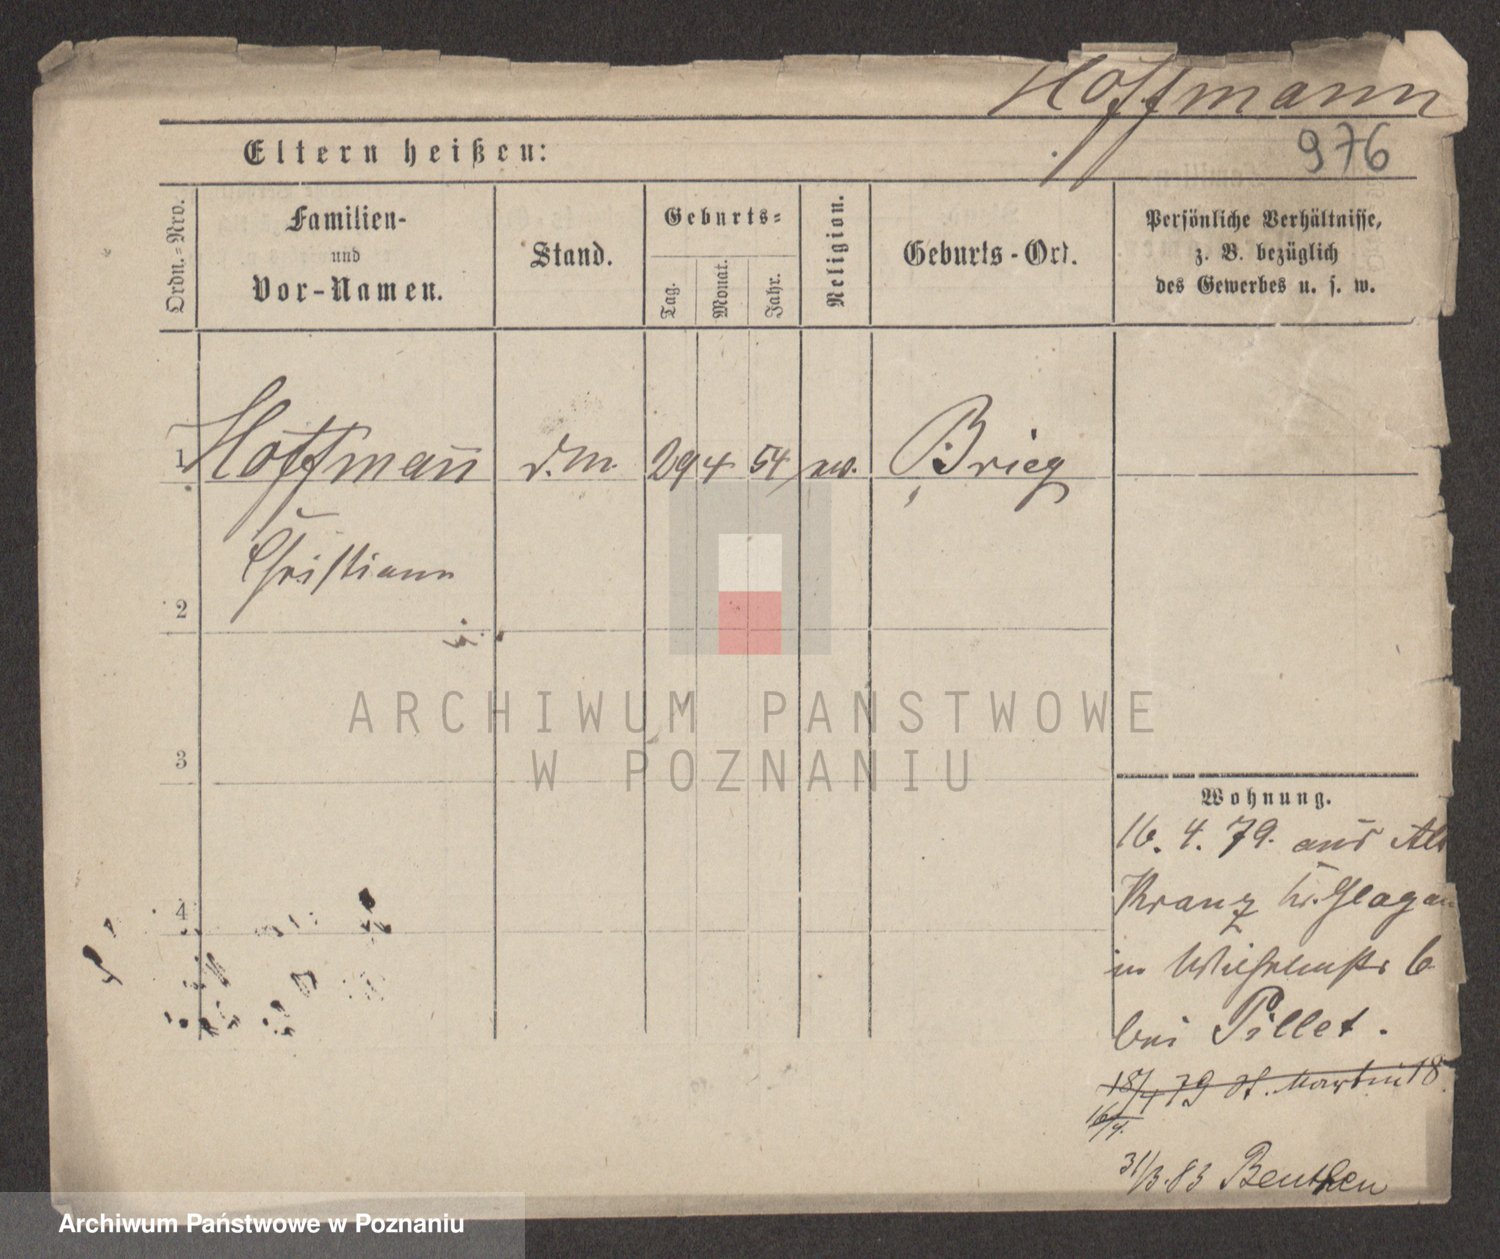 Hoffmann
976
Eltern heißen:
Ordn.=Nro.
Familien-
und
Vor-Namen.
Stand.
Geburts=
Tag.
Monat.
Jahr.
Religion.
Geburts-Ort.
Persönliche Verhältnisse,
z. B. bezüglich
des Gewerbes u. s. w.
1 Hoffmañ d. m. 29 4 54 ev. Brieg
Christiane
2
3
4
ARCHIWUM PAŃSTWOWE
W POZNANIU
Wohnung.
16. 4. 79. aus Alt
Kranz Kr. Glogau
in Wilhelmstr 6
bei Pillet.
18/4 79 St. Martin 18
16/4.
31/3. 83 Beuthen
Archiwum Państwowe w Poznaniu